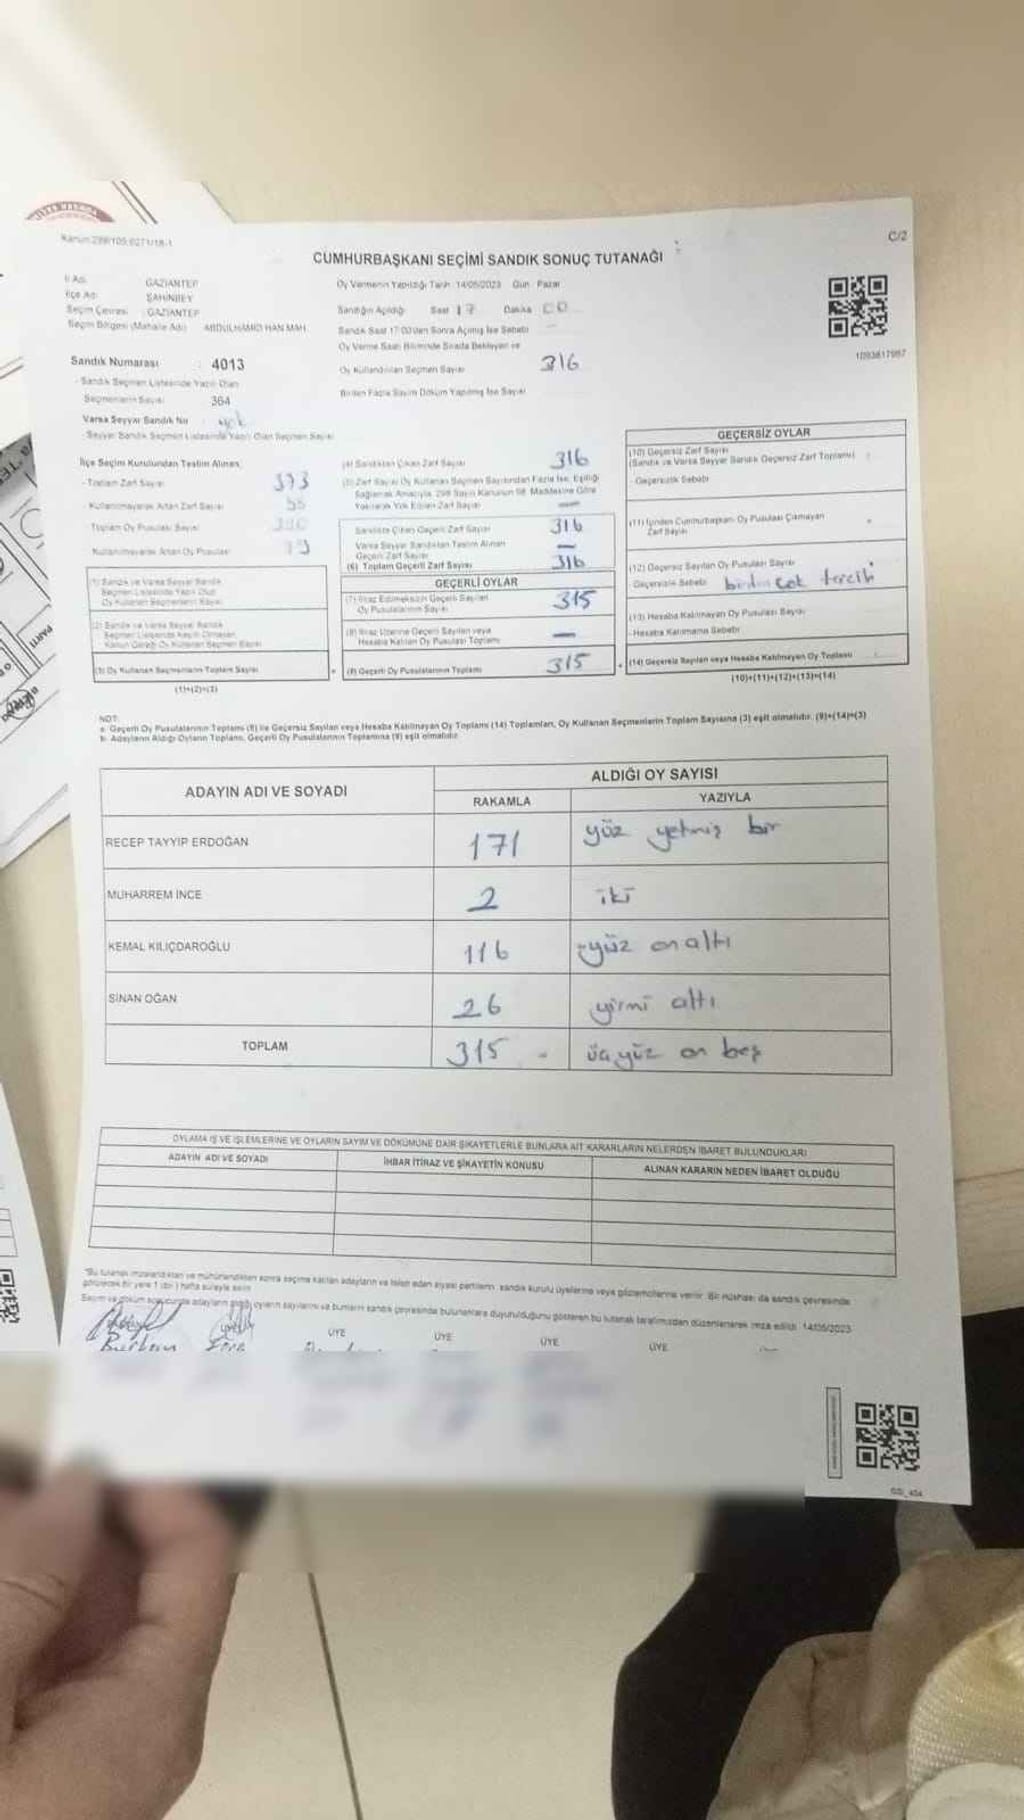 Kanun:298/105;6271/18-1
C/2
CUMHURBAŞKANI SEÇİMİ SANDIK SONUÇ TUTANAĞI
İl Adı: GAZİANTEP
İlçe Adı: ŞAHİNBEY
Seçim Çevresi: GAZİANTEP
Seçim Bölgesi (Mahalle Adı) ABDULHAMİD HAN MAH.
Sandık Numarası : 4013
- Sandık Seçmen Listesinde Yazılı Olan
Seçmenlerin Sayısı 364
Varsa Seyyar Sandık No yok
- Seyyar Sandık Seçmen Listesinde Yazılı Olan Seçmen Sayısı
Oy Vermenin Yapıldığı Tarih: 14/05/2023 Gün: Pazar
Sandığın Açıldığı Saat 17 Dakika 00
Sandık Saat 17:00'den Sonra Açılmış İse Sebebi
Oy Verme Saati Bitiminde Sırada Bekleyen ve
Oy Kullandırılan Seçmen Sayısı 316
Birden Fazla Sayım Döküm Yapılmış İse Sayısı
1093817987
İlçe Seçim Kurulundan Teslim Alınan;
- Toplam Zarf Sayısı 373
- Kullanılmayarak Artan Zarf Sayısı
- Toplam Oy Pusulası Sayısı
- Kullanılmayarak Artan Oy Pusulası
(1) Sandık ve Varsa Seyyar Sandık
Seçmen Listesinde Yazılı Olup
Oy Kullanan Seçmenlerin Sayısı
(2) Sandık ve Varsa Seyyar Sandık
Seçmen Listesinde Kayıtlı Olmayan
Kanun Gereği Oy Kullanan Seçmen Sayısı
(3) Oy Kullanan Seçmenlerin Toplam Sayısı
(1)+(2)=(3)
(4) Sandıktan Çıkan Zarf Sayısı 316
(5) Zarf Sayısı Oy Kullanan Seçmen Sayısından Fazla İse; Eşitliği
Sağlamak Amacıyla, 298 Sayılı Kanunun 98. Maddesine Göre
Yakılarak Yok Edilen Zarf Sayısı —
Sandıkta Çıkan Geçerli Zarf Sayısı 316
Varsa Seyyar Sandıktan Teslim Alınan
Geçerli Zarf Sayısı —
(6) Toplam Geçerli Zarf Sayısı 316
GEÇERLİ OYLAR
(7) İtiraz Edilmeksizin Geçerli Sayılan
Oy Pusulalarının Sayısı 315
(8) İtiraz Üzerine Geçerli Sayılan veya
Hesaba Katılan Oy Pusulası Toplamı —
(9) Geçerli Oy Pusulalarının Toplamı 315
GEÇERSİZ OYLAR
(10) Geçersiz Zarf Sayısı
(Sandık ve Varsa Seyyar Sandık Geçersiz Zarf Toplamı)
- Geçersizlik Sebebi
(11) İçinden Cumhurbaşkanı Oy Pusulası Çıkmayan
Zarf Sayısı
(12) Geçersiz Sayılan Oy Pusulası Sayısı
Geçersizlik Sebebi birden çok tercih
(13) Hesaba Katılmayan Oy Pusulası Sayısı
- Hesaba Katılmama Sebebi
(14) Geçersiz Sayılan veya Hesaba Katılmayan Oy Toplamı
(10)+(11)+(12)+(13)=(14)
NOT:
a- Geçerli Oy Pusulalarının Toplamı (9) ile Geçersiz Sayılan veya Hesaba Katılmayan Oy Toplamı (14) Toplamları, Oy Kullanan Seçmenlerin Toplam Sayısına (3) eşit olmalıdır. (9)+(14)=(3)
b- Adayların Aldığı Oyların Toplamı, Geçerli Oy Pusulalarının Toplamına (9) eşit olmalıdır.
ADAYIN ADI VE SOYADI
ALDIĞI OY SAYISI
RAKAMLA YAZIYLA
RECEP TAYYIP ERDOĞAN 171 yüz yetmiş bir
MUHARREM İNCE 2 iki
KEMAL KILIÇDAROĞLU 116 yüz on altı
SİNAN OĞAN 26 yirmi altı
TOPLAM 315 üçyüz on beş
OYLAMA İŞ VE İŞLEMLERİNE VE OYLARIN SAYIM VE DÖKÜMÜNE DAİR ŞİKAYETLERLE BUNLARA AİT KARARLARIN NELERDEN İBARET BULUNDUKLARI
ADAYIN ADI VE SOYADI İHBAR İTİRAZ VE ŞİKAYETİN KONUSU ALINAN KARARIN NEDEN İBARET OLDUĞU
"Bu tutanak imzalandıktan ve mühürlendikten sonra seçime katılan adayların ve talep eden siyasi partilerin sandık kurulu üyelerine veya gözlemcilerine verilir. Bir nüshası da sandık çevresinde
görülecek bir yere 1 (bir) hafta süreyle asılır.
Sayım ve döküm sonucunda adayların aldığı oyların sayılarını ve bunların sandık çevresinde bulunanlara duyurulduğunu gösteren bu tutanak tarafımızdan düzenlenerek imza edildi. 14/05/2023
ÜYE ÜYE ÜYE ÜYE